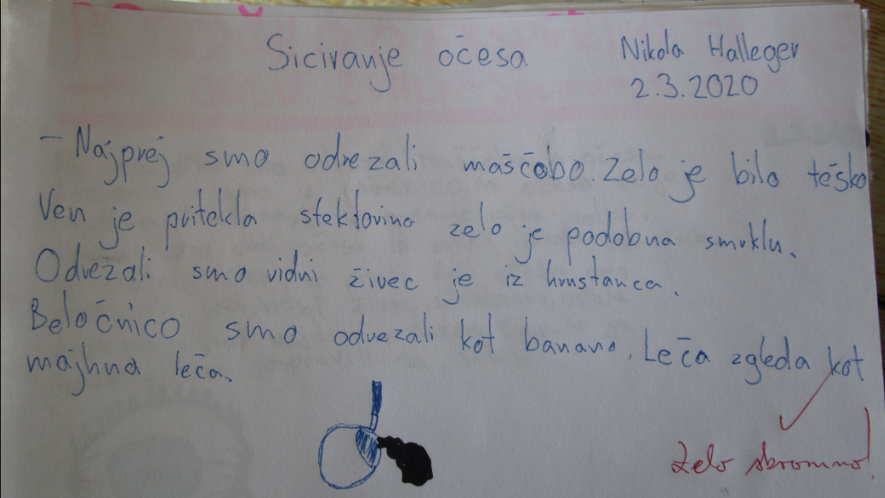 Siciranje očesa
Nikola Halleger
2.3.2020
- Najprej smo odrezali maščobo. Zelo je bilo težko
Ven je pritekla steklovina zelo je podobna smrklu.
Odrezali smo vidni živec je iz hrustanca.
Beločnico smo odrezali kot banano. Leča zgleda kot
majhna leča.
Zelo skromno!